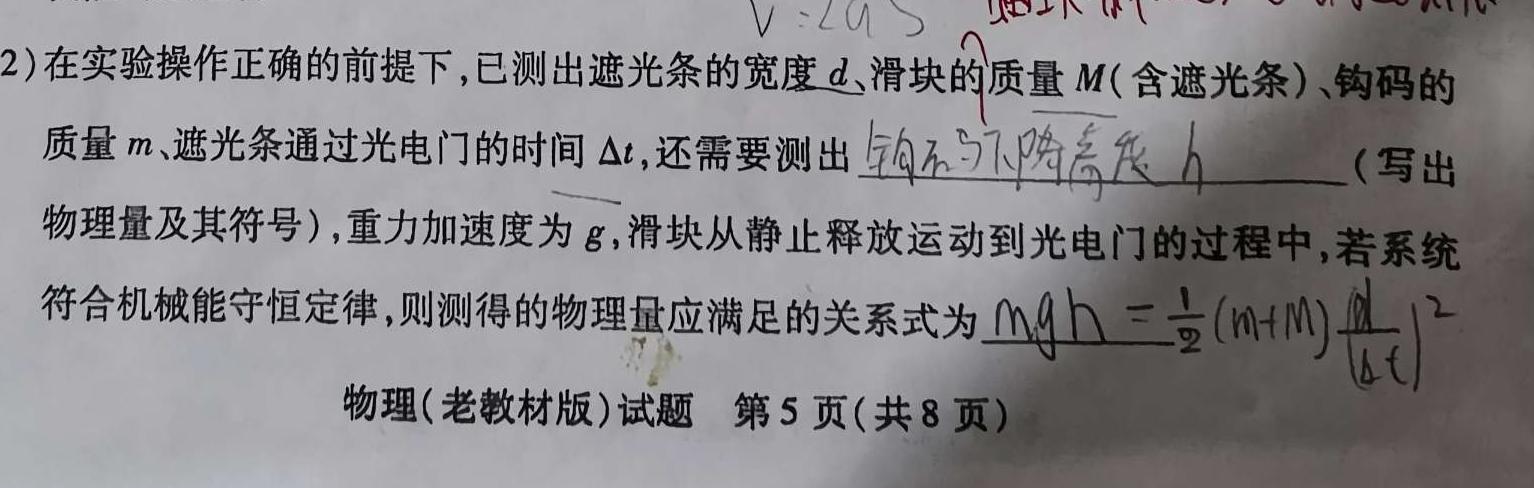 V=2aS
2)在实验操作正确的前提下,已测出遮光条的宽度d、滑块的质量M(含遮光条)、钩码的
质量m、遮光条通过光电门的时间Δt,还需要测出钩码下降高度h(写出
物理量及其符号),重力加速度为g,滑块从静止释放运动到光电门的过程中,若系统
符合机械能守恒定律,则测得的物理量应满足的关系式为mgh=1/2(m+M)(d/Δt)²
物理(老教材版)试题 第5页(共8页)